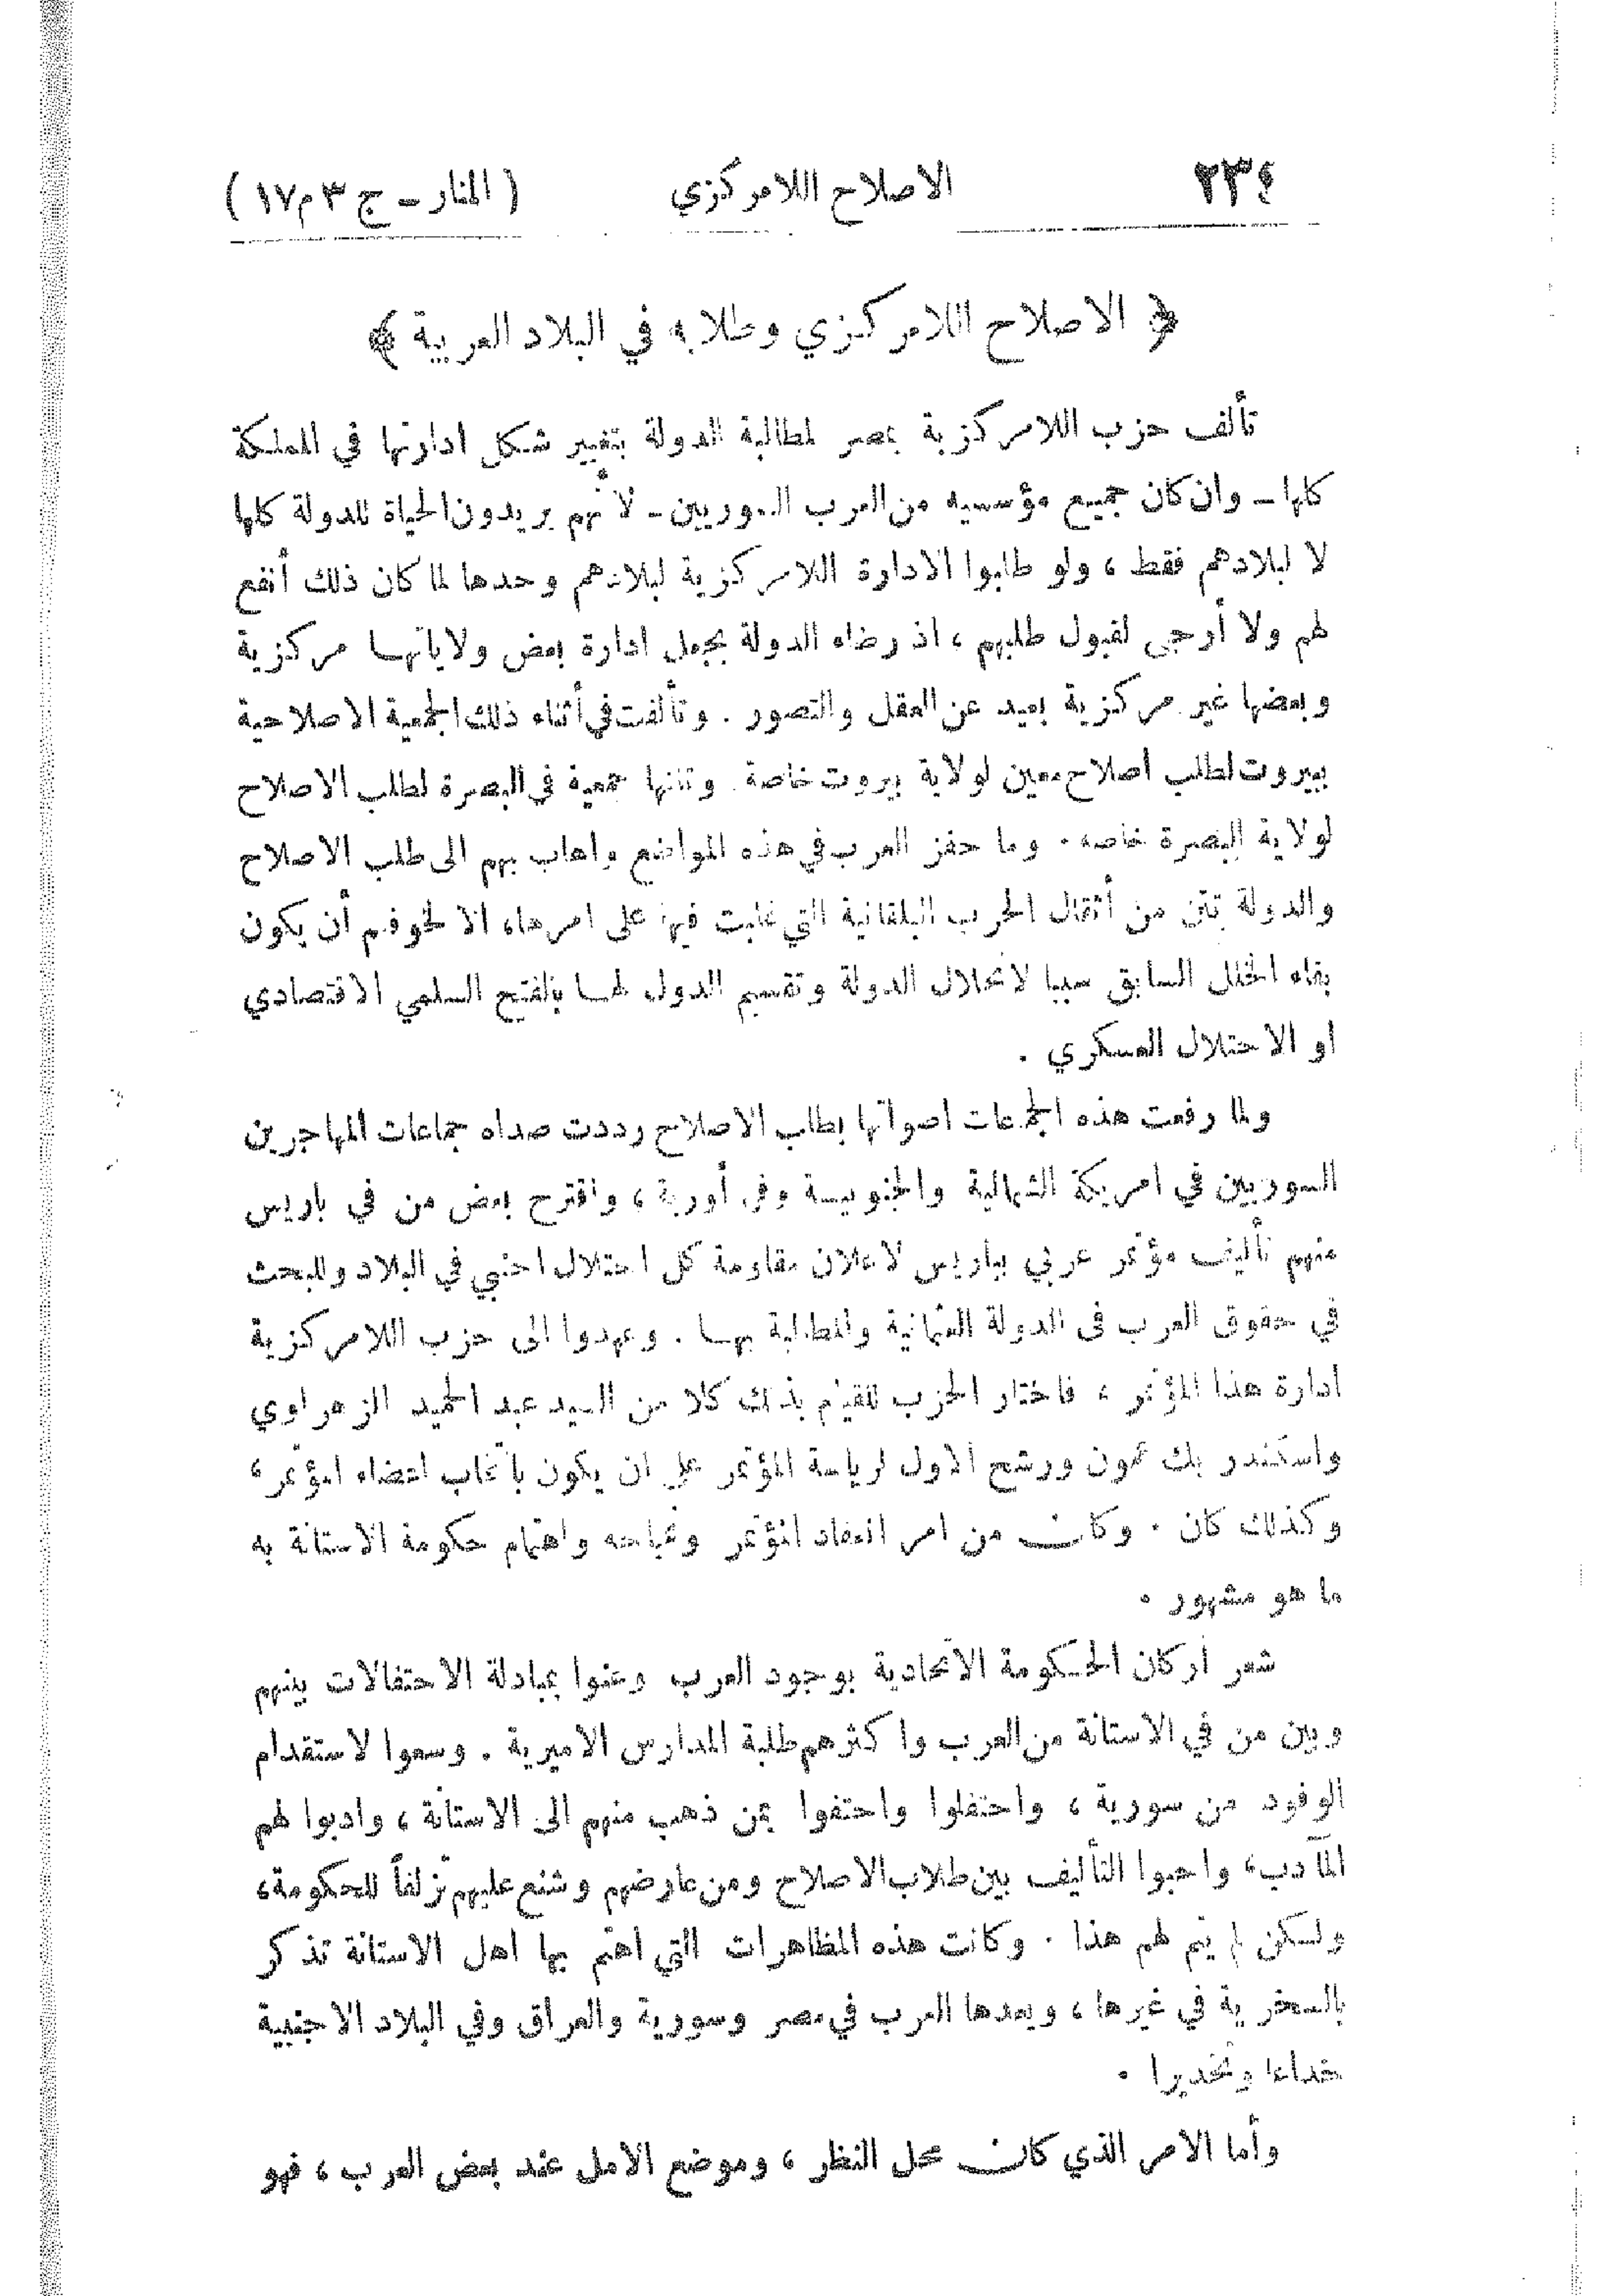 ٢٣٤ الاصلاح اللامركزي ( المنار ــ ج ٣ م ١٧ )
﴿ الاصلاح اللامركزي وطلابه في البلاد العربية ﴾
تألف حزب اللامركزية بمصر لمطالبة الدولة بتغيير شكل ادارتها في المملكة
كلها ــ وان كان جميع مؤسسيه من العرب السوريين ــ لأنهم يريدون الحياة للدولة كلها
لا لبلادهم فقط ، ولو طلبوا الادارة اللامركزية لبلادهم وحدها لما كان ذلك أنفع
لهم ولا أرجى لقبول طلبهم ، اذ رضاء الدولة بجعل ادارة بعض ولاياتهـا مركزية
وبعضها غير مركزية بعيد عن العقل والتصور . وتألفت في أثناء ذلك الجمعية الاصلاحية
ببيروت لطلب اصلاح معين لولاية بيروت خاصة وتلتها جمعية في البصرة لطلب الاصلاح
لولاية البصرة خاصه . وما حفز العرب في هذه المواضع واهاب بهم الى طلب الاصلاح
والدولة تئن من أثقال الحرب البلقانية التي غلبت فيها على امرها، الا لخوفهم أن يكون
بقاء الخلل السابق سببا لانحلال الدولة وتقسيم الدول لهـا بالفتح السلمي الاقتصادي
او الاحتلال العسكري .
ولما رفعت هذه الجمعيات اصواتها بطلب الاصلاح رددت صداه جماعات المهاجرين
السوريين في امريكة الشمالية والجنوبيـة وفي أوربة ، واقترح بعض من في باريس
منهم تأليف مؤتمر عربي بباريس لاعلان مقاومة كل احتلال اجنبي في البلاد وللبحث
في حقوق العرب في الدولة العثمانية والمطالبة بهـا . وعهدوا الى حزب اللامركزية
ادارة هذا المؤتمر ، فاختار الحزب للقيام بذلك كلا من السيد عبد الحميد الزهراوي
واسكندر بك عمون ورشح الاول لرياسة المؤتمر على ان يكون بانتخاب اعضاء المؤتمر ،
وكذلك كان . وكان من امر انعقاد المؤتمر ونجاحه واهتمام حكومة الاستانة به
ما هو مشهور .
شعر اركان الحكومة الاتحادية بوجود العرب وعنوا بمبادلة الاحتفالات بينهم
وبين من في الاستانة من العرب واكثرهم طلبة المدارس الاميرية . وسعوا لاستقدام
الوفود من سورية ، واحتفلوا واحتفوا بمن ذهب منهم الى الاستانة ، وادبوا لهم
المآدب، واحبوا التأليف بين طلاب الاصلاح ومن عارضهم وشنع عليهم تزلفاً للحكومة،
ولـكن لم يتم لهم هذا . وكانت هذه المظاهرات التي اهتم بها اهل الاستانة تذكر
بالسخرية في غيرها ، ويعدها العرب في مصر وسورية والعراق وفي البلاد الاجنبية
خداعا وتخديرا .
وأما الامر الذي كان محل النظر ، وموضع الامل عند بعض العرب ، فهو